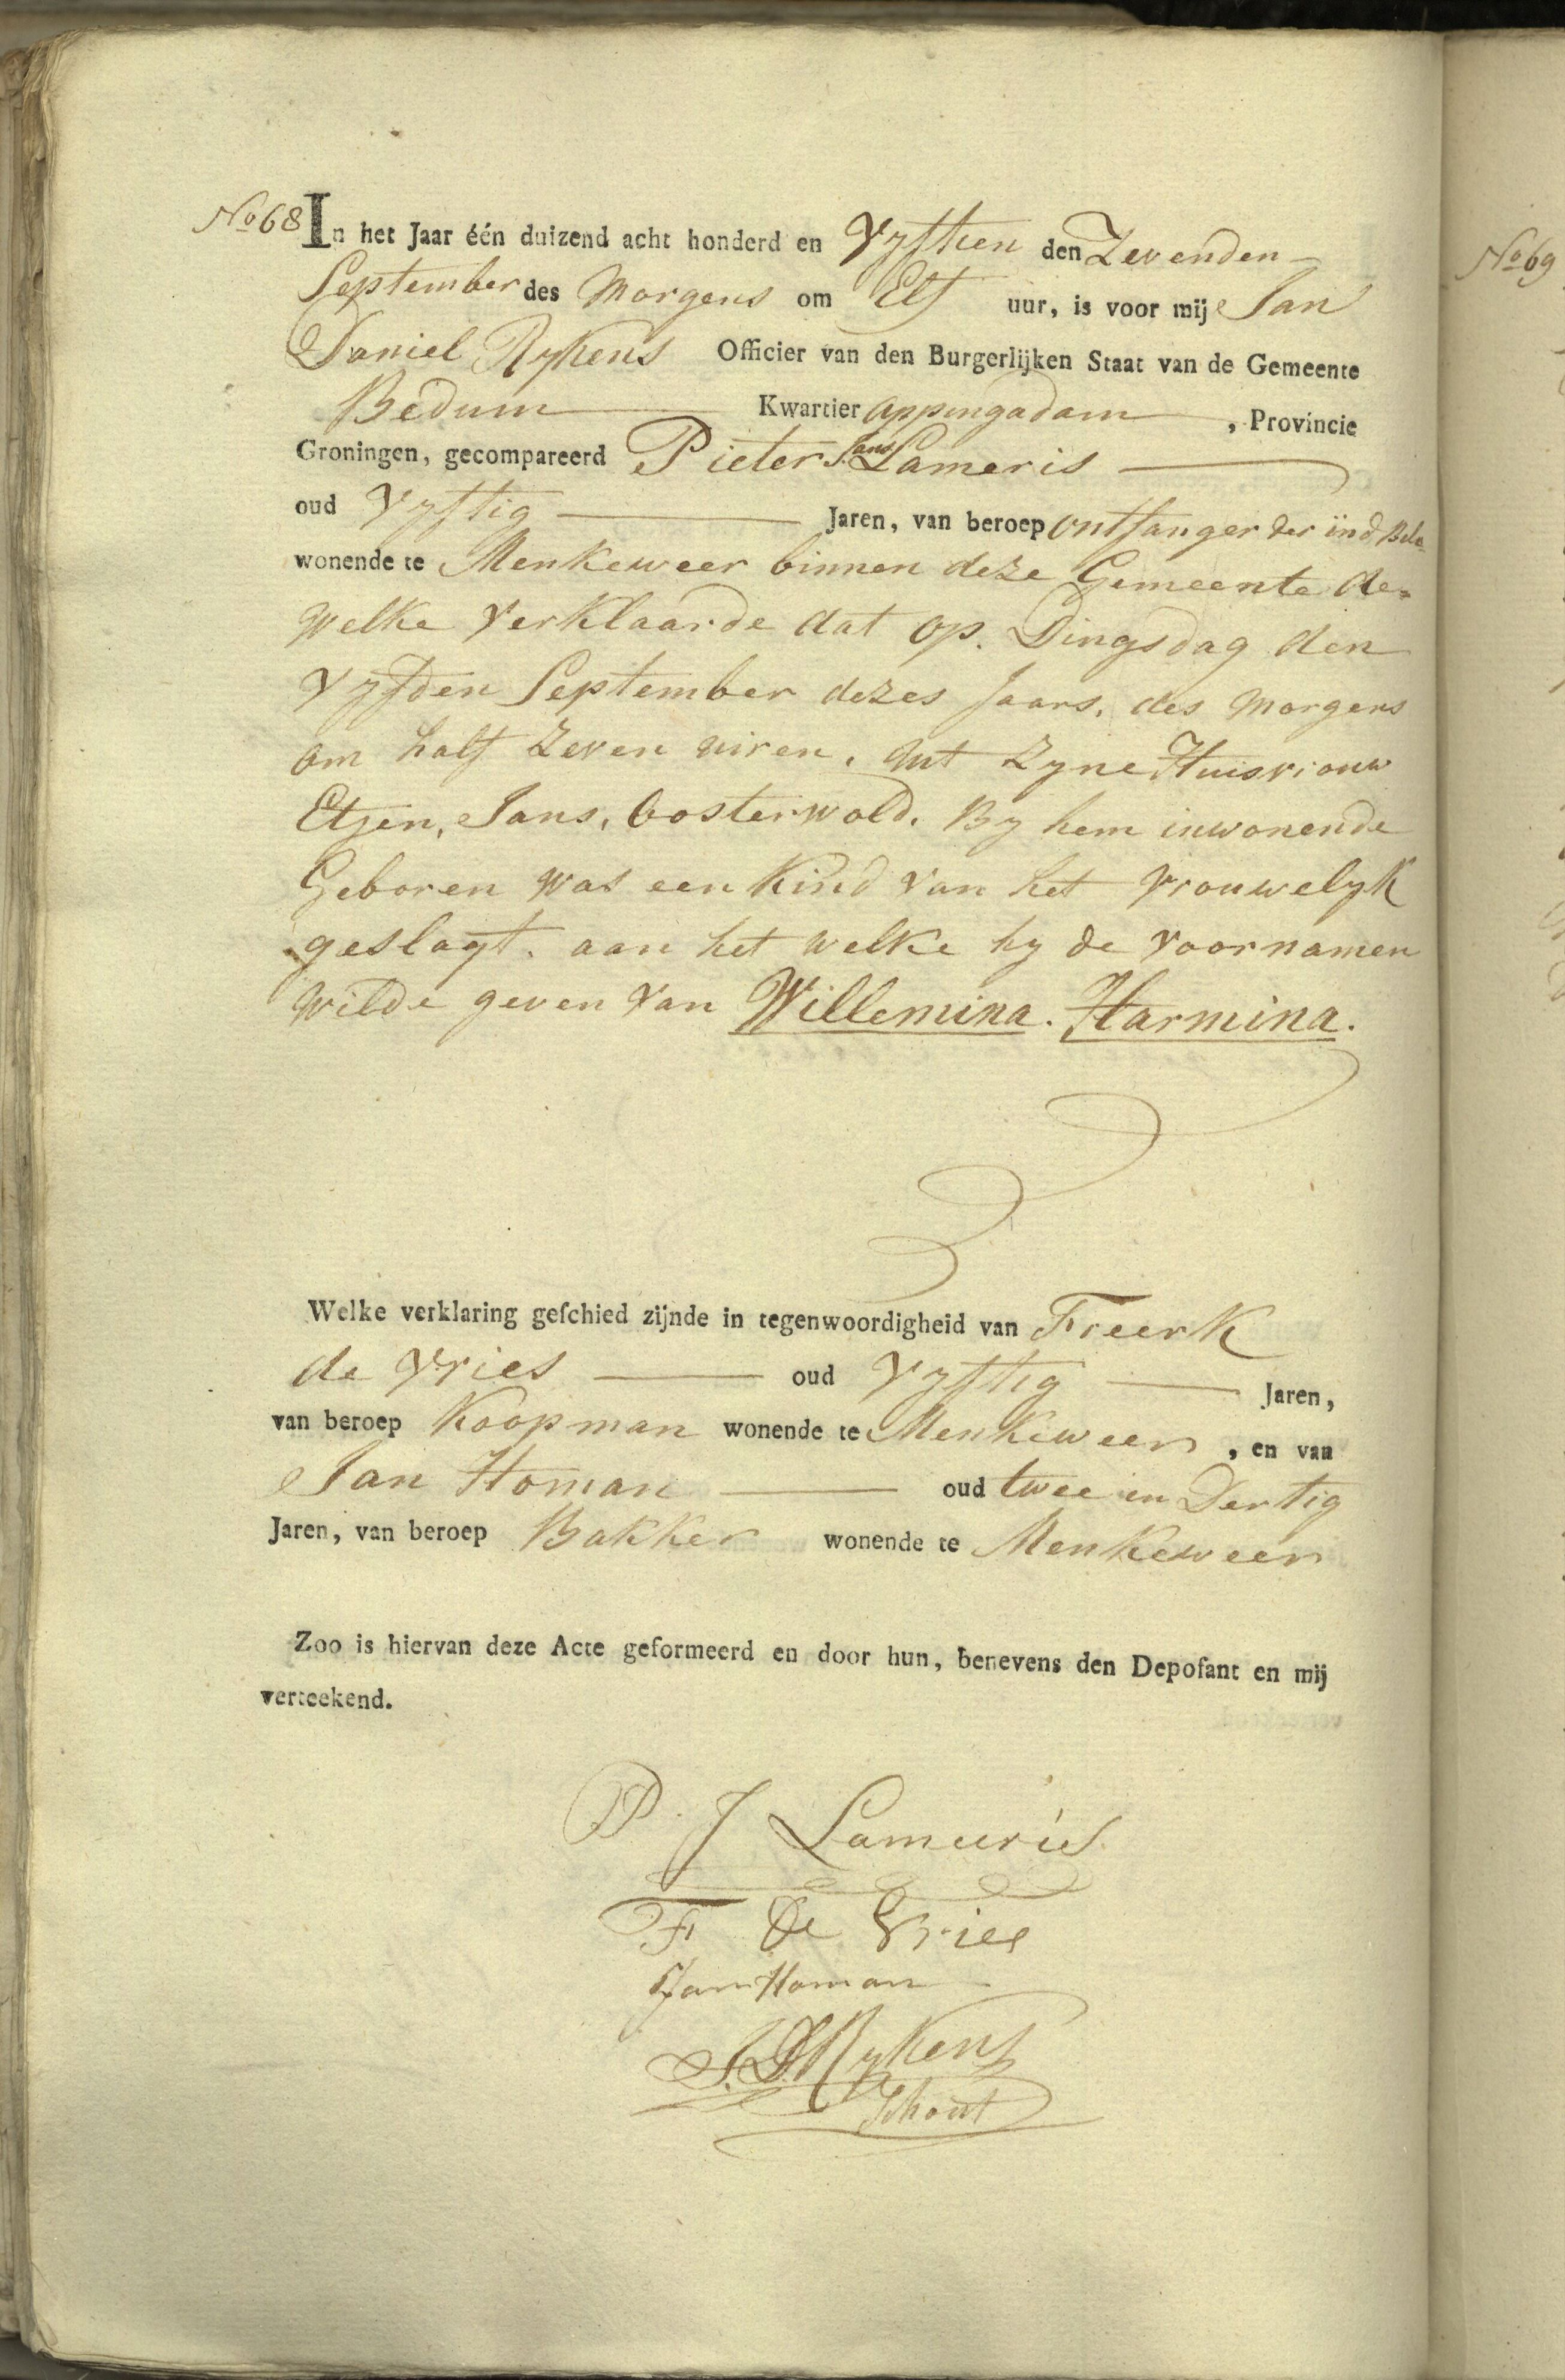 No 68 In het Jaar één duizend acht honderd en Vyftien den Zevenden
September des Morgens om Elf uur, is voor mij Jan
Daniel Rykens Officier van den Burgerlijken Staat van de Gemeente
Bedum Kwartier appingadam, Provincie
Groningen, gecompareerd Pieter Jans Lameris
oud Vyftig Jaren, van beroep ontfanger der ind Bela
wonende te Menkeweer binnen deze Gemeente de=
welke verklaarde dat op. Dingsdag den
vyfden September dezes Jaars, des morgens
om half zeven uiren, uit zyne Huisvrouw
Etjen, Jans, Oosterwold. By hem inwonende
Geboren was een Kind van het vrouwelyk
geslagt. aan het welke hy de voornamen
wilde geven van Willemina. Harmina.
Welke verklaring geſchied zijnde in tegenwoordigheid van Freerk
de Vries oud Vyftig Jaren,
van beroep Koopman wonende te Menkeweer, en van
Jan Homan oud twee en Dertig
Jaren, van beroep Bakker wonende te Menkeweer
Zoo is hiervan deze Acte geformeerd en door hun, benevens den Depoſant en mij
verteekend.
P. J Lameris
F De Vries
Jan Homan
J. D. Rykens
Schout
No 69